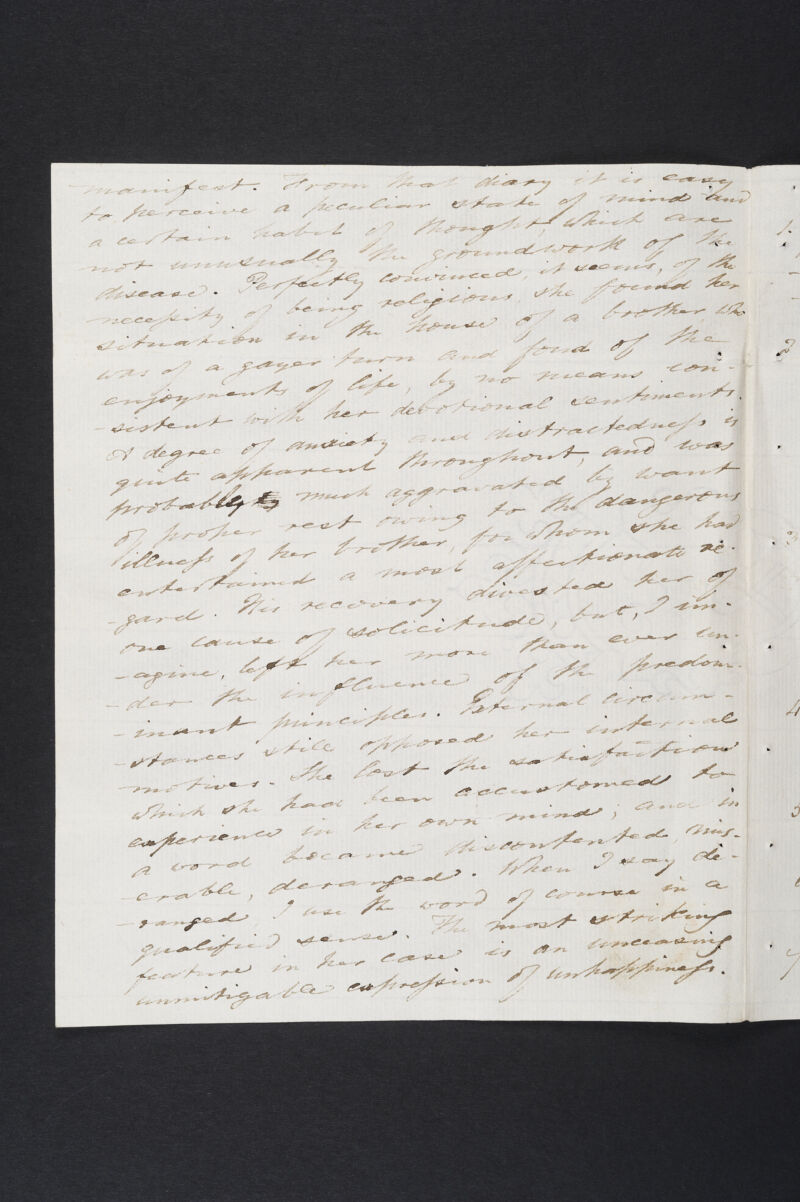 manifest. From that diary it is easy
to perceive a peculiar state of mind and
a certain habit of thought, which are
not unusually the groundwork of the
disease. Perfectly convinced, it seems, of the
necessity of being religious, she found her
situation in the house of a brother who
was of a gayer turn and fond of the
enjoyments of life, by no means con-
-sistent with her devotional sentiments.
A degree of anxiety and distractedness is
quite apparent throughout, and was
probably much aggravated by want
of proper rest owing to the dangerous
illness of her brother, for whom she had
entertained a most affectionate re-
-gard. His recovery divested her of
one cause of solicitude, but, I im-
-agine, left her more than ever un-
-der the influence of the predom-
-inant principles. External circum-
-stances still opposed her internal
motives. She lost the satisfaction
which she had been accustomed to
experience in her own mind; and in
a word became discontented, mis-
-erable, deranged. When I say de-
-ranged, I use the word of course in a
qualified sense. The most striking
feature in her case is an unceasing
unmitigable expression of unhappiness.
1.
2
3
4
5
7